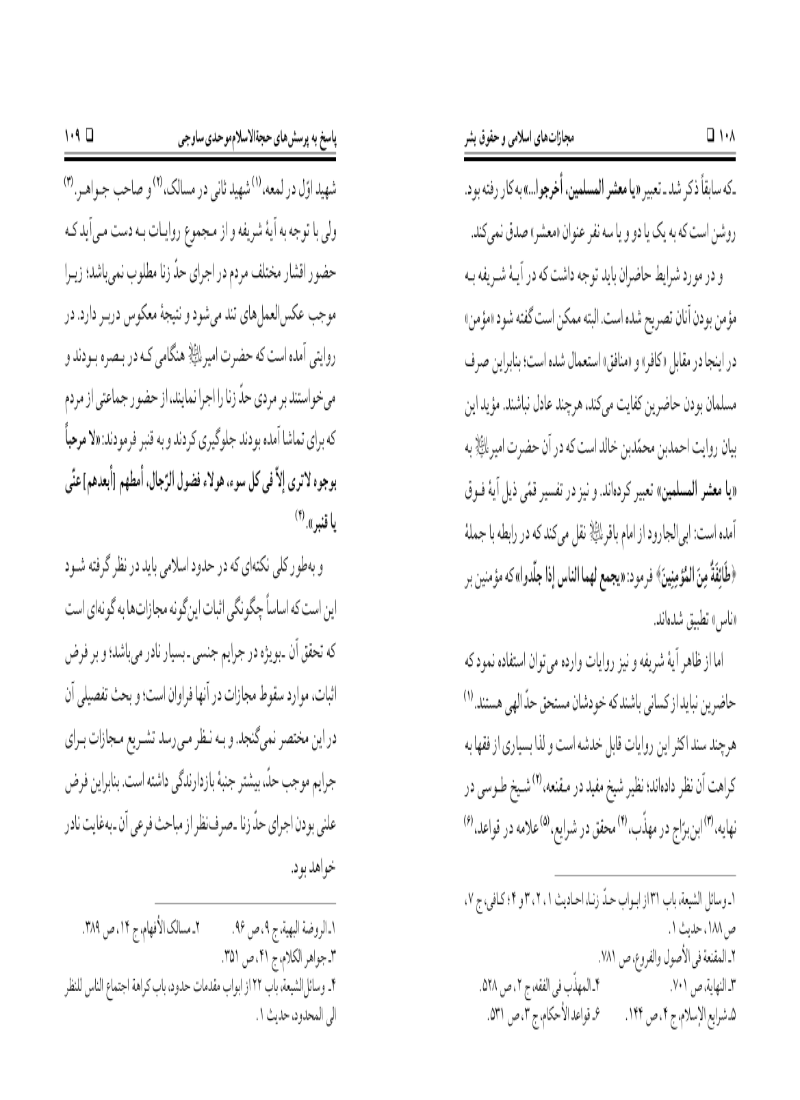 ۱۰۸ ❑ مجازات‌های اسلامی و حقوق بشر
ـ که سابقاً ذکر شد ـ تعبیر «یا معشر المسلمین، أخرجوا...» به کار رفته بود.
روشن است که به یک یا دو و یا سه نفر عنوان «معشر» صدق نمی‌کند.
و در مورد شرایط حاضران باید توجه داشت که در آیهٔ شریفه به
مؤمن بودن آنان تصریح شده است. البته ممکن است گفته شود «مؤمن»
در اینجا در مقابل «کافر» و «منافق» استعمال شده است؛ بنابراین صرف
مسلمان بودن حاضرین کفایت می‌کند، هرچند عادل نباشند. مؤید این
بیان روایت احمدبن محمّدبن خالد است که در آن حضرت امیر علیه‌السلام به
«یا معشر المسلمین» تعبیر کرده‌اند. و نیز در تفسیر قمّی ذیل آیهٔ فوق
آمده است: ابی‌الجارود از امام باقر علیه‌السلام نقل می‌کند که در رابطه با جملهٔ
﴿طَائِفَةٌ مِنَ المُؤمِنِينَ﴾ فرمود: «یجمع لهما الناس إذا جلّدوا» که مؤمنین بر
«ناس» تطبیق شده‌اند.
اما از ظاهر آیهٔ شریفه و نیز روایات وارده می‌توان استفاده نمود که
حاضرین نباید از کسانی باشند که خودشان مستحق حدّ الهی هستند.(۱)
هرچند سند اکثر این روایات قابل خدشه است و لذا بسیاری از فقها به
کراهت آن نظر داده‌اند؛ نظیر شیخ مفید در مقنعه،(۲) شیخ طوسی در
نهایه،(۳) ابن‌برّاج در مهذّب،(۴) محقق در شرایع،(۵) علامه در قواعد،(۶)
۱ـ وسائل الشیعة، باب ۳۱ از ابواب حدّ زنا، احادیث ۱، ۲، ۳ و ۴؛ کافی، ج ۷،
ص ۱۸۸، حدیث ۱.
۲ـ المقنعة فی الأصول والفروع، ص ۷۸۱.
۳ـ النهایة، ص ۷۰۱. ۴ـ المهذّب فی الفقه، ج ۲، ص ۵۲۸.
۵ـ شرایع الإسلام، ج ۴، ص ۱۴۴. ۶ـ قواعد الأحکام، ج ۳، ص ۵۳۱.
پاسخ به پرسش‌های حجة‌الاسلام موحدی ساوجی ❑ ۱۰۹
شهید اوّل در لمعه،(۱) شهید ثانی در مسالک،(۲) و صاحب جواهر.(۳)
ولی با توجه به آیهٔ شریفه و از مجموع روایات به دست می‌آید که
حضور اقشار مختلف مردم در اجرای حدّ زنا مطلوب نمی‌باشد؛ زیرا
موجب عکس‌العمل‌های تند می‌شود و نتیجهٔ معکوس دربر دارد. در
روایتی آمده است که حضرت امیر علیه‌السلام هنگامی که در بصره بودند و
می‌خواستند بر مردی حدّ زنا را اجرا نمایند، از حضور جماعتی از مردم
که برای تماشا آمده بودند جلوگیری کردند و به قنبر فرمودند: «لا مرحباً
بوجوه لاتری إلاّ فی کل سوء، هولاء فضول الرّجال، أمطهم [أبعدهم] عنّی
یا قنبر».(۴)
و به‌طور کلی نکته‌ای که در حدود اسلامی باید در نظر گرفته شود
این است که اساساً چگونگی اثبات این‌گونه مجازات‌ها به گونه‌ای است
که تحقق آن ـ بویژه در جرایم جنسی ـ بسیار نادر می‌باشد؛ و بر فرض
اثبات، موارد سقوط مجازات در آنها فراوان است؛ و بحث تفصیلی آن
در این مختصر نمی‌گنجد. و به نظر می‌رسد تشریع مجازات برای
جرایم موجب حدّ، بیشتر جنبهٔ بازدارندگی داشته است. بنابراین فرض
علنی بودن اجرای حدّ زنا ـ صرف‌نظر از مباحث فرعی آن ـ به‌غایت نادر
خواهد بود.
۱ـ الروضة البهیة، ج ۹، ص ۹۶. ۲ـ مسالک الأفهام، ج ۱۴، ص ۳۸۹.
۳ـ جواهر الکلام، ج ۴۱، ص ۳۵۱.
۴ـ وسائل الشیعة، باب ۲۲ از ابواب مقدمات حدود، باب کراهة اجتماع الناس للنظر
الی المحدود، حدیث ۱.